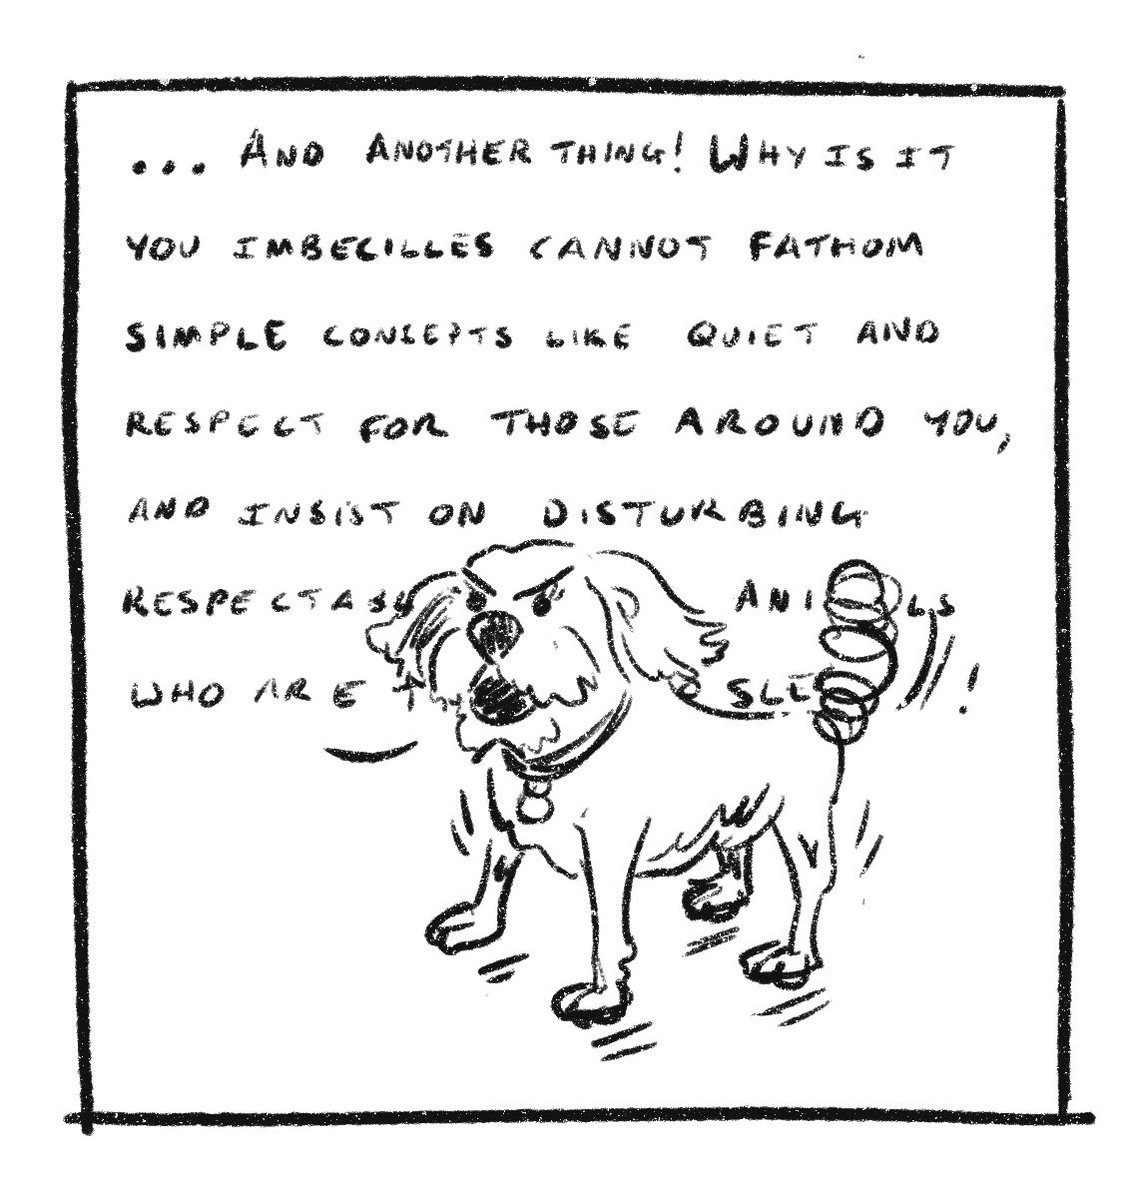 ... AND ANOTHER THING! WHY IS IT
YOU IMBECILLES CANNOT FATHOM
SIMPLE CONCEPTS LIKE QUIET AND
RESPECT FOR THOSE AROUND YOU,
AND INSIST ON DISTURBING
WHO ARE !